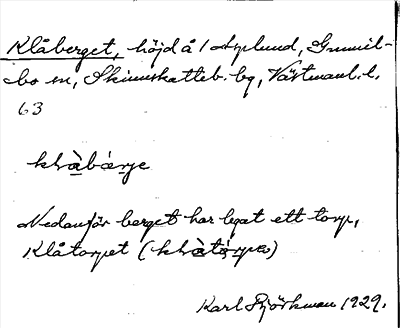 Klåberget, höjd å / Nylund, Gunnil-
bo sn, Skinnskatteb. bg, Västmanl. l.
63
klàbærje
Nedanför berget har legat ett torp,
Klåtorpet (klàtórpe)
Karl Björkman 1929.